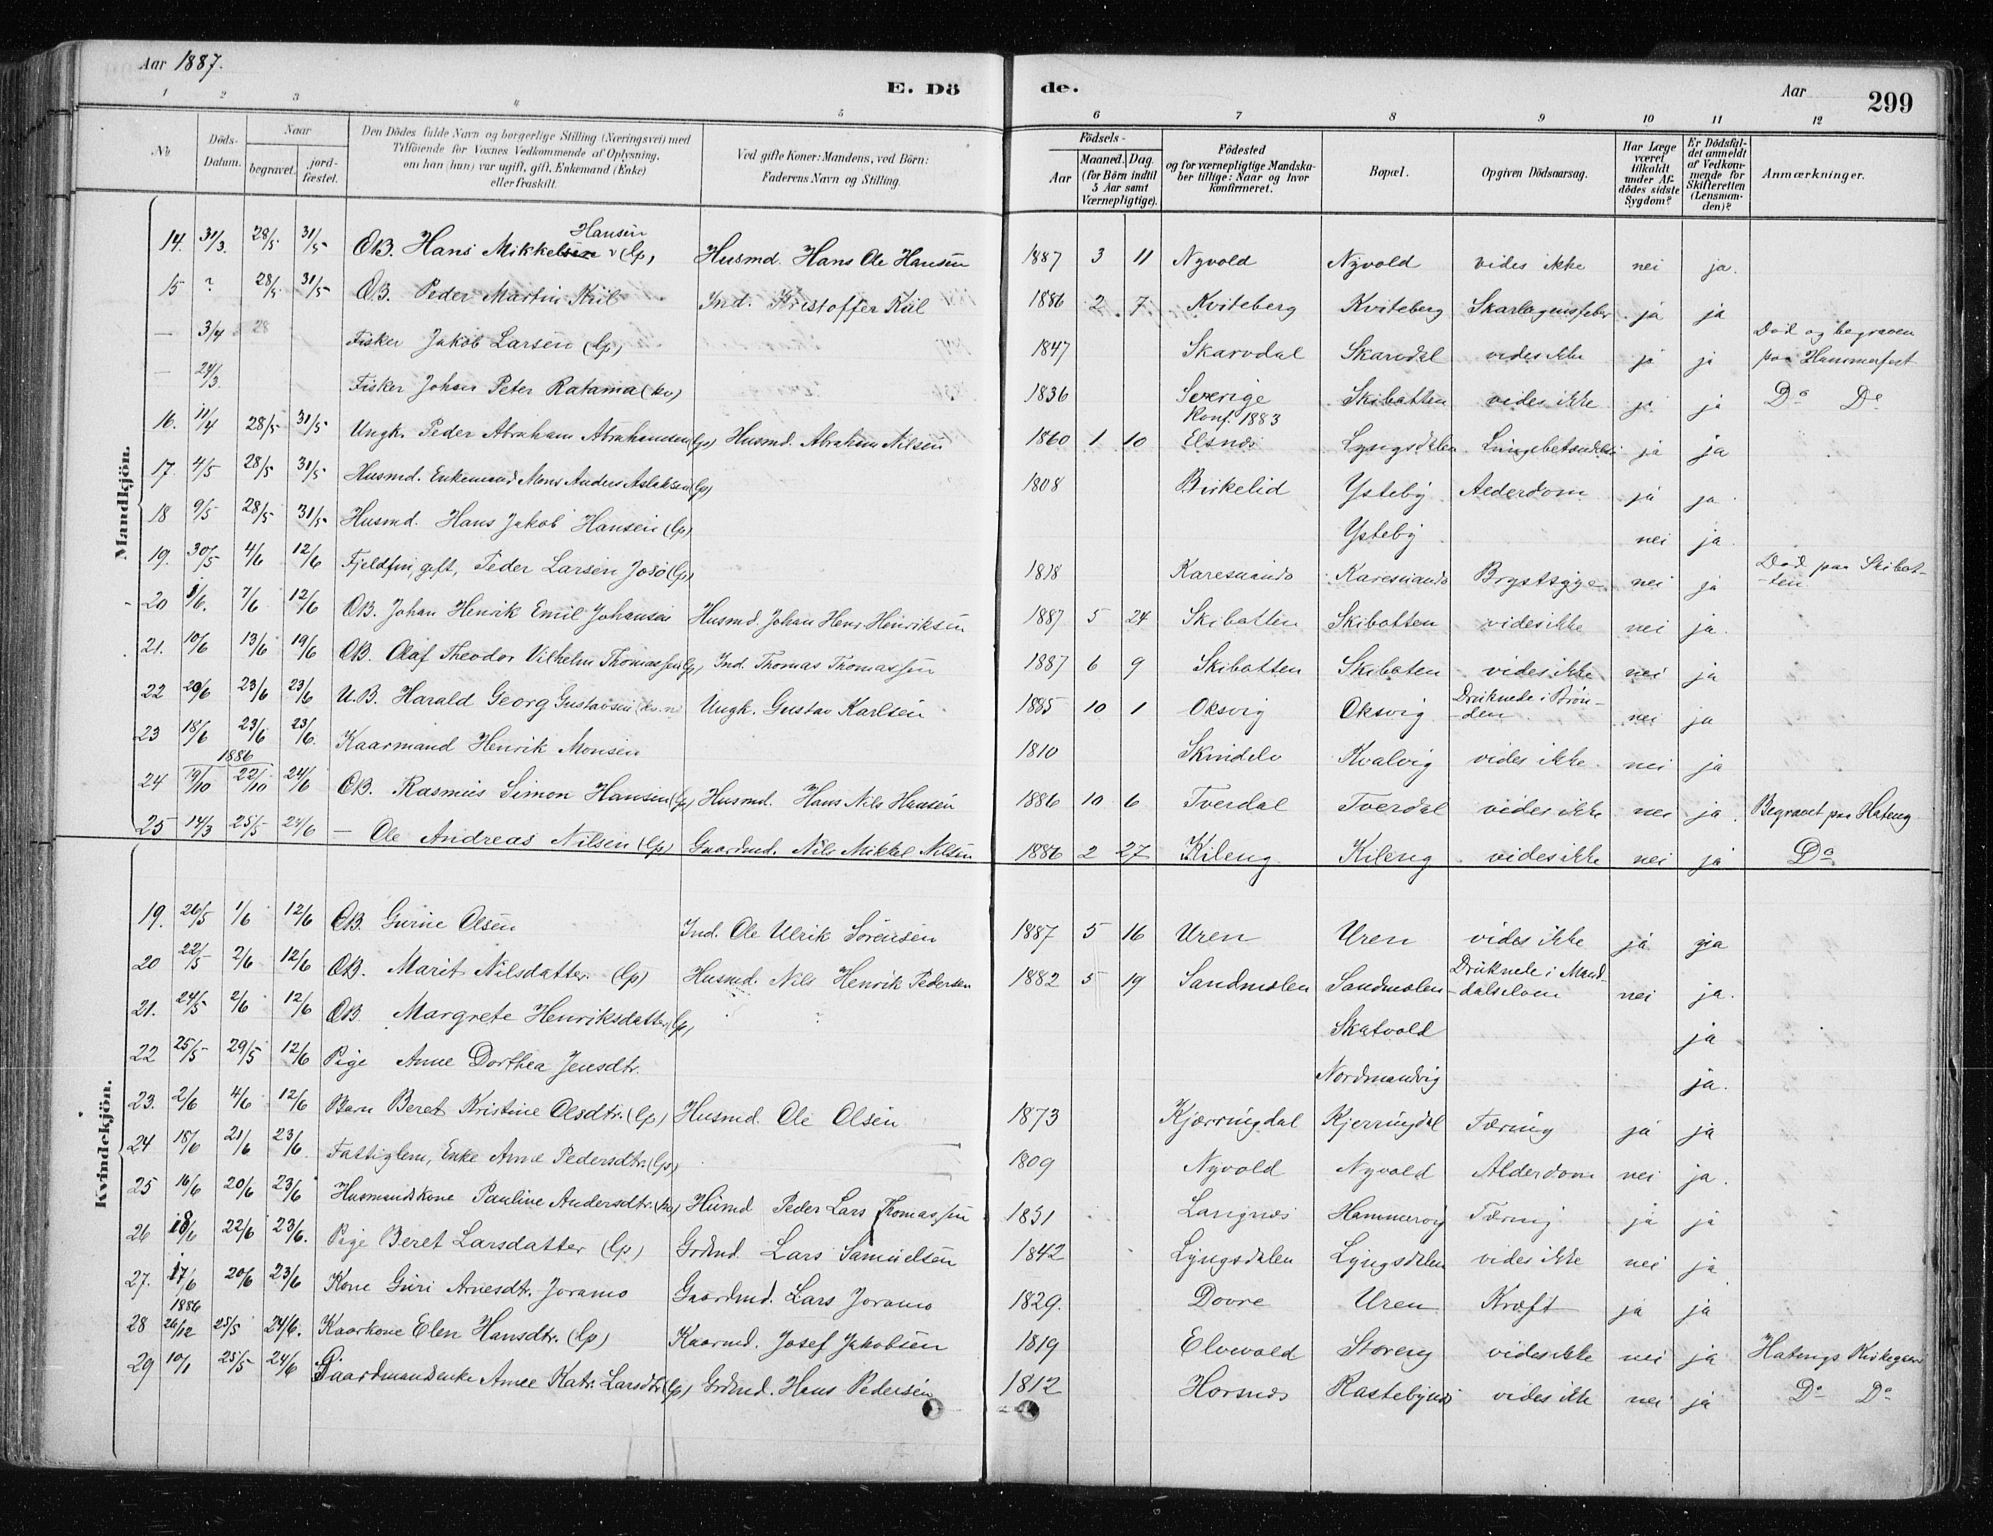 Aar 1887.
E. Dö
de.
Aar
299
1 2 3 4 5 6 7 8 9 10 11 12
No.
Döds-Datum.
Naar
begravet.
jord-fæstet.
Den Dödes fulde Navn og borgerlige Stilling (Næringsvei) med
Tilföiende for Voxnes Vedkommende af Oplysning,
om han (hun) var ugift, gift, Enkemand (Enke)
eller fraskilt.
Ved gifte Koner: Mandens, ved Börn:
Faderens Navn og Stilling.
Födsels-
Aar
Maaned. Dag.
(for Börn indtil
5 Aar samt
Værnepligtige).
Födested
og for værnepligtige Mandska-
ber tillige: Naar og hvor
konfirmeret.
Bopæl.
Opgiven Dödsaarsag.
Har Læge
været
tilkaldt
under Af-
dödes sidste
Sygdom?
Er Dödsfal-
det anmeldt
af Vedkom-
mende for
Skifteretten
(Lensman-
den)?
Anmærkninger.
Mandkjön.
14. 31/3. 28/5 31/5 ÆB. Hans Mikkelsen Hansen (lp) Husmd. Hans Ole Hansen 1887 3 11 Nyvold Nyvold vides ikke nei ja.
15 ? 28/5 31/5 ÆB. Peder Martin Kiil Ind. Kristoffer Kiil 1886 2 7 Kviteberg Kviteberg Skarlagensfeber ja ja
— 3/4 28 Fisker Jakob Larsen (lp) 1847 Skarvdal Skarvdal vides ikke ja ja Död og begraven paa Hammerfest
— 24/3 Fisker Johan Peter Ratama (kv) 1836 Sverige Skibotten vides ikke ja ja Do Do
16. 11/4 28/5 31/5 Ungk. Peder Abraham Abrahamsen (lp) Husmd. Abraham Nilsen 1860 1 10 Konf. 1883 Elsnæs Lyngsdalen ja ja
17. 4/5 28/5 31/5 Husmd. Enkemand Mons Anders Aslaksen (lp) 1808 Birkelid Ysteby Alderdom ja ja
18 9/5 28/5 31/5 Husmd. Hans Jakob Hansen (lp) Ysteby nei ja.
19. 30/5 4/6 12/6 Fjeldfin, gift, Peder Larsen (lp) 1818 Karesuando Karesuando Brystsyge nei ja Död paa Skibot-ten
20 1/6. 7/6 12/6 ÆB. Johan Henrik Emil Johansen Husmd. Johan Henr Henriksen 1887 5 24 Skibotten Skibotten vides ikke nei ja.
21. 10/6 13/6 19/6 ÆB. Olaf Theodor Vilhelm Thomassen (lp) Ind. Thomas Thomassen 1887 6 9 Skibotten Skiboten vides ikke nei ja
22 20/6 23/6 23/6 U.B. Harald Georg Gustavsen Ungk. Gustav Karlsen 1885 10 1 Oksvig Oksvig Druknede i Brön-den nei ja
23 18/6 23/6 23/6. Kaarmand Henrik Monsen 1810 Skindelv Kvalvig vides ikke. nei ja
1886
24 19/10 22/10 24/6 ÆB. Rasmus Simon Hansen (lp) Husmd. Hans Nils Hansen 1886 10 6 Tverdal Tverdal vides ikke nei ja. Begravet paa Hateng
25 14/3 25/5 24/6 — Ole Andreas Nilsen (lp) Gaardmd. Nils Mikkel Nilsen 1886 2 27 Kileng Kileng vides ikke nei ja Do
Kvindekjön.
19. 26/5 1/6 12/6 ÆB. Gurine Olsen Ind. Ole Ulrik Sörensen 1887 5 16 Uren Uren vides ikke ja ja
20 22/5 2/6 12/6 ÆB. Marit Nilsdatter. (lp) Husmd. Nils Henrik Pedersen 1882 5 19 Sandmolen Sandmolen Druknede i Mand-dalselven nei ja.
21. 24/5 2/6 12/6 ÆB. Margrete Henriksdatter (lp) Skatvold ja
22 25/5 29/5 12/6 Pige Anne Dorthea Jensdtr. Nordmandvig ja.
23. 2/6 4/6 12/6 Barn Beret Kristine Olsdtr. (lp) Husmd. Ole Olsen 1873 Kjærringdal Kjerringdal Tæring ja ja
24 18/6 21/6 23/6. Fattiglem, Enke Anne Pedersdtr. (lp) 1809 Nyvold Nyvold Alderdom nei ja.
25 16/6 20/6 23/6 Husmandskone Pauline Andersdtr. (kv) Husmd Peder Lars Thomassen 1851 Langnæs Hammervig Tæring ja ja
26 18/6 22/6 23/6. Pige Beret Larsdatter (lp) Grdmd. Lars Samuelsen 1842 Lyngsdalen Lyngsdalen vides ikke nei ja
27. 17/6 20/6 23/6 Kone Guri Arnesdtr. Joramo Gaardmd. Lars Joramo 1829. Dovre Uren Kræft ja ja
1886
28 26/12 25/5 24/6. Kaarkone Elen Hansdtr. (lp) Kaarmd. Josef Jakobsen 1819 Elvevold Storeng vides ikke nei ja Hatengs Kirkegaard
29 10/1 25/5 24/6 Gaardmandsenke Anne Katr. Larsdtr (lp) Grdmd. Hans Pedersen 1812 Horsnæs Rastebynæs vides ikke nei ja Do Do